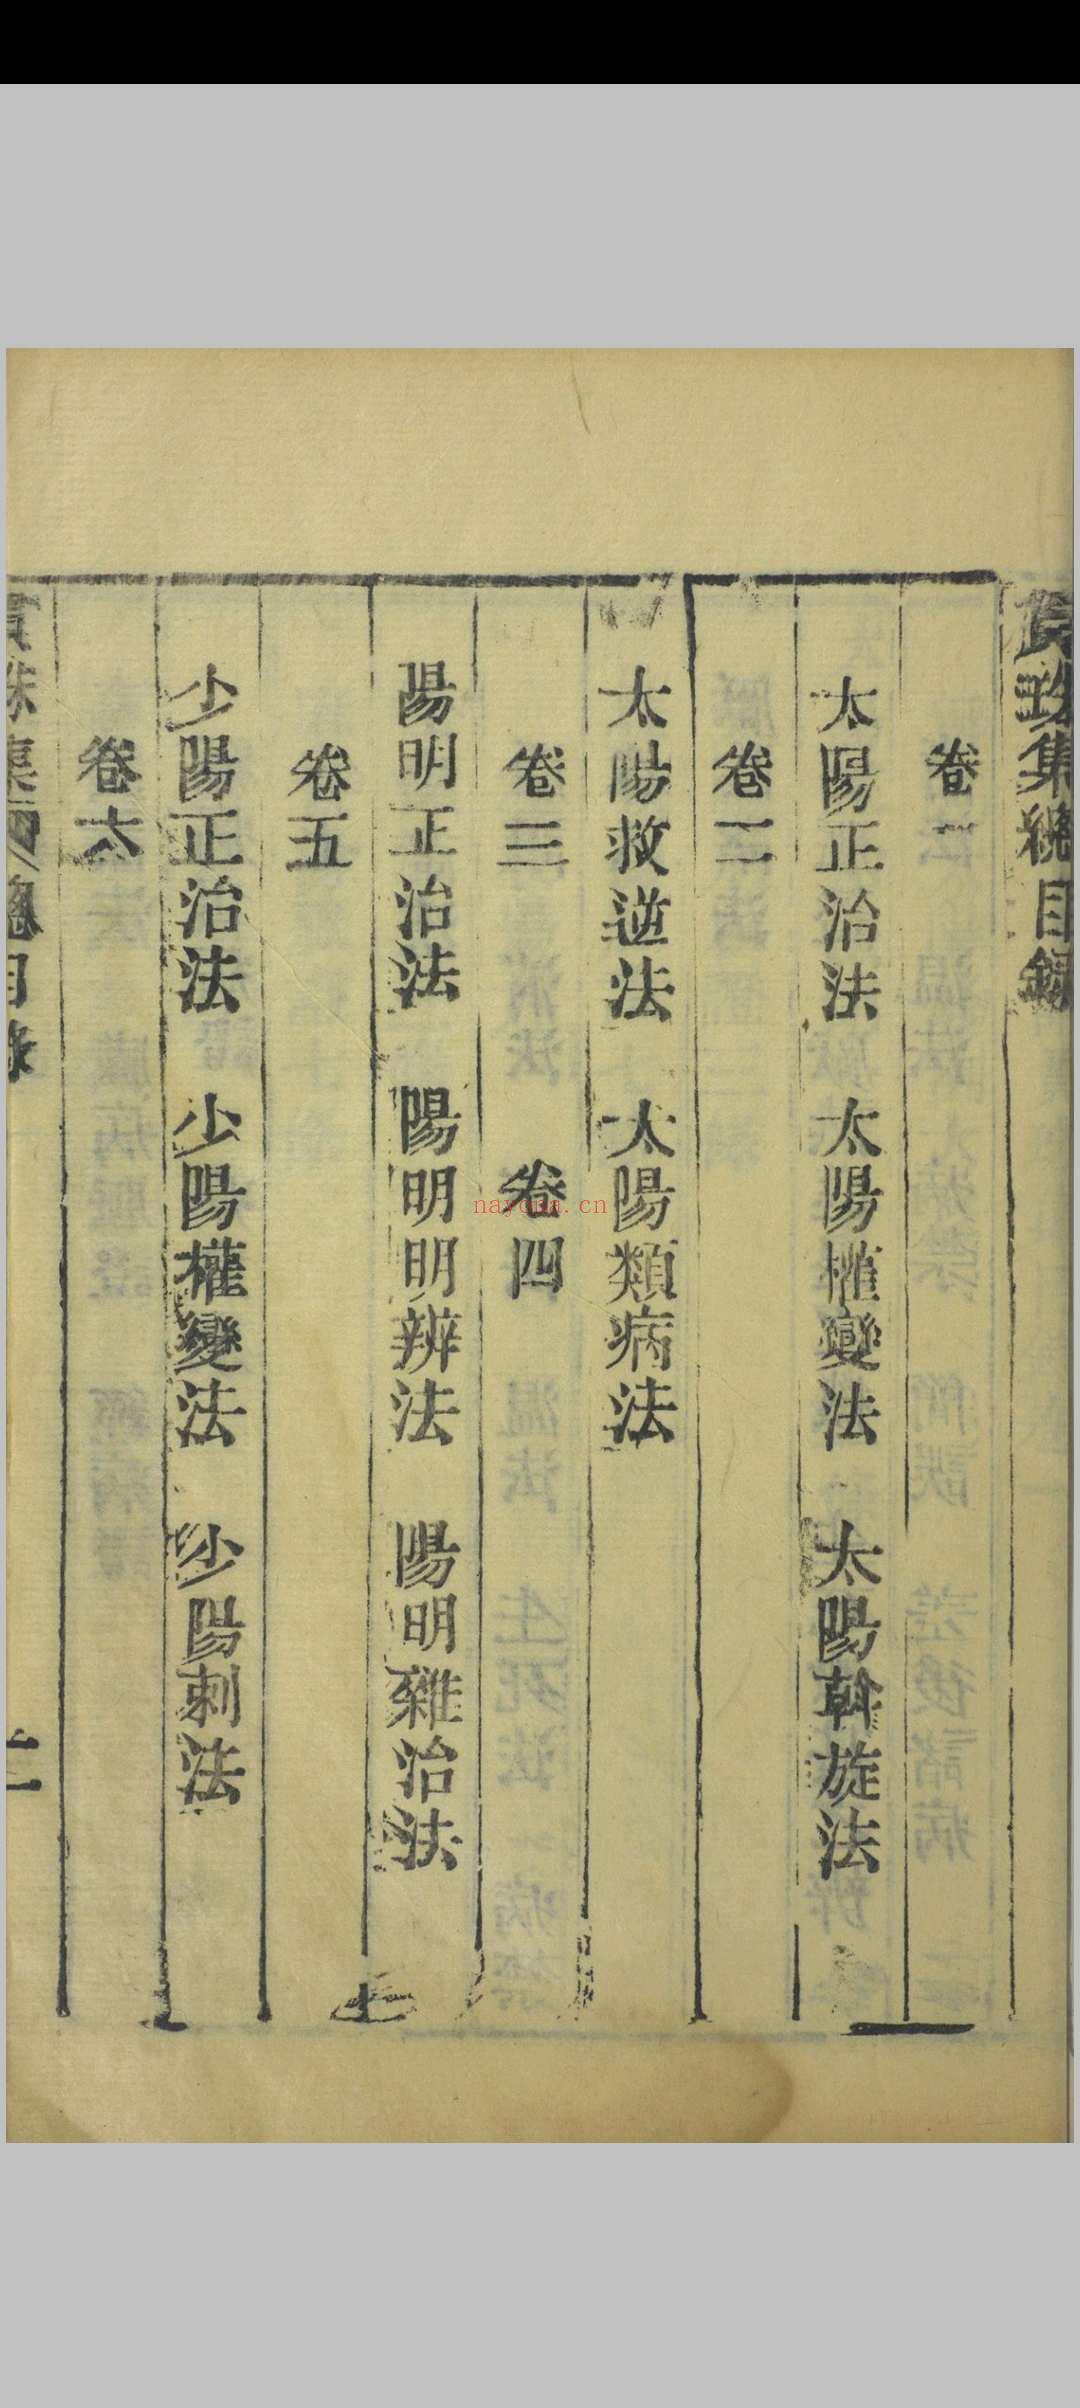 貫珠集總目錄
卷一
太陽正治法 太陽權變法 太陽斡旋法
卷二
太陽救逆法 太陽類病法
卷三 卷四
陽明正治法 陽明明辨法 陽明雜治法
卷五
少陽正治法 少陽權變法 少陽刺法
卷六
貫珠集 總目錄 二
nayona.cn